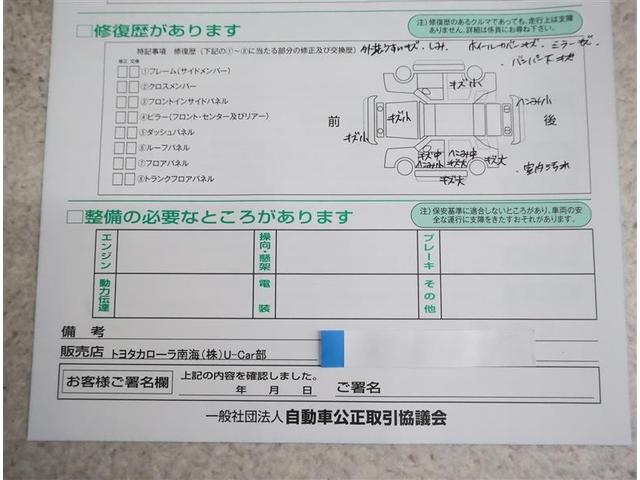 □修復歴があります
注）修復歴のあるクルマであっても、走行上は支障ありません。詳細は係員にお尋ね下さい。
特記事項 修復歴（下記の①～⑧に当たる部分の修正及び交換歴）
外装うすいキズ・しみ ホイールカバーキズ・ミラーキズ
・バンパー下キズ
修正 交換
□□①フレーム（サイドメンバー）
□□②クロスメンバー
□□③フロントインサイドパネル
□□④ピラー（フロント・センター及びリアー）
□□⑤ダッシュパネル
□□⑥ルーフパネル
□□⑦フロアパネル
□□⑧トランクフロアパネル
キズ小
前
キズ小
キズ小
ヘこみ小
後
キズ中
ヘこみ小
ヘこみ中
キズ大
キズ大
キズ大
・室内汚れ
□整備の必要なところがあります
注）保安基準に適合しないところがあり、車両の安全な運行に支障をきたすおそれがあります。
エンジン
操向・懸架
ブレーキ
動力伝達
電装
その他
備考
販売店 トヨタカローラ南海（株）U-Car部
お客様ご署名欄
上記の内容を確認しました。
年 月 日
ご署名
一般社団法人 自動車公正取引協議会